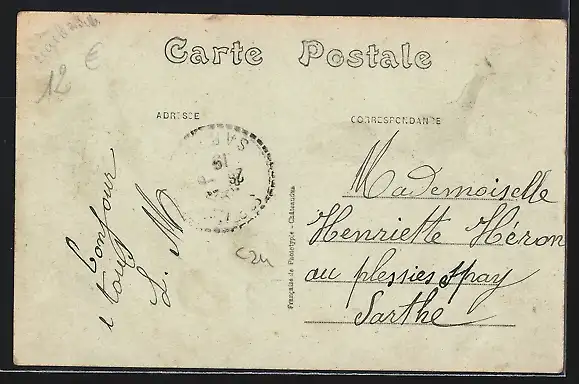 12 €
Carte Postale
ADRESSE
CORRESPONDANCE
Mademoiselle
Henriette Héron
au plessies Spay
Sarthe
bonjour
a tous
L. M
SAR
19
Française de Phototypie - Châteaudun